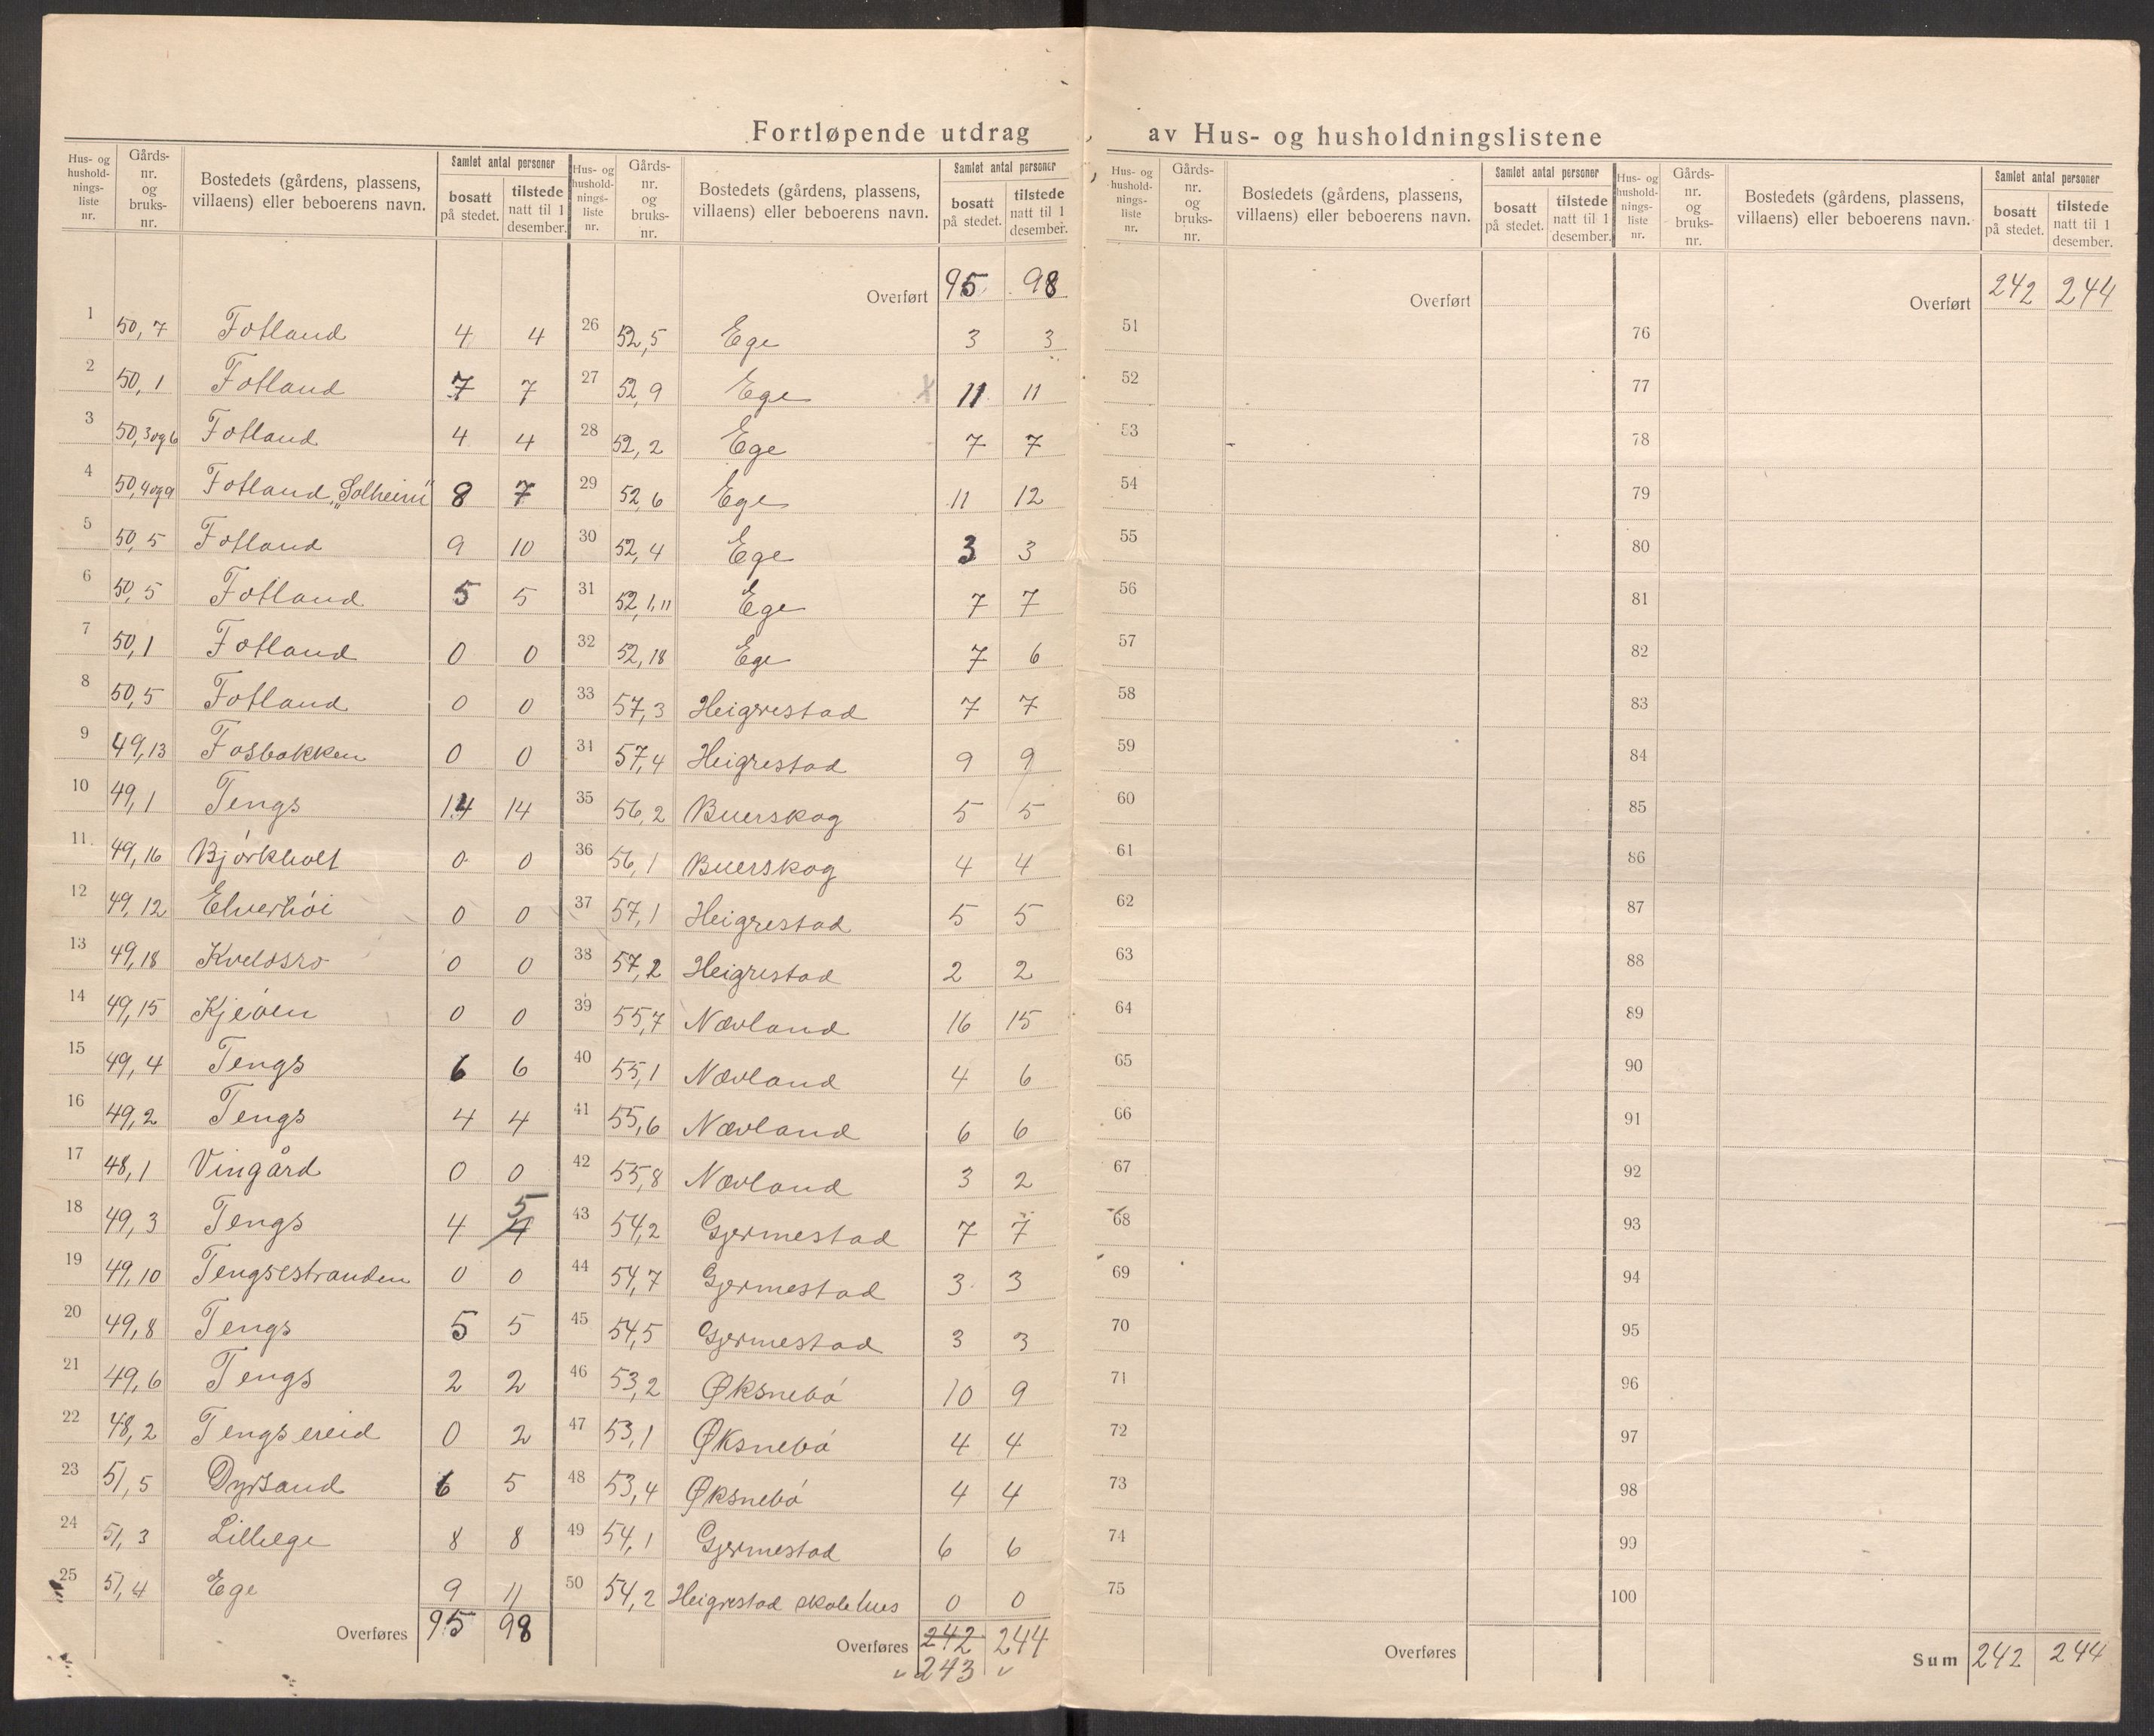 Fortløpende utdrag av Hus- og husholdningslistene
Hus- og hushold-nings-liste nr. | Gårds-nr. og bruks-nr. | Bostedets (gårdens, plassens, villaens) eller beboerens navn. | Samlet antal personer | bosatt på stedet. | tilstede natt til 1 desember.
1 50,7 Fotland 4 4
2 50,1 Fotland 7 7
3 50,3og6 Fotland 4 4
4 50,4og9 Fotland „Solheim" 8 7
5 50,5 Fotland 9 10
6 50,5 Fotland 5 5
7 50,1 Fotland 0 0
8 50,5 Fotland 0 0
9 49,13 Fosbakken 0 0
10 49,1 Tengs 14 14
11 49,16 Bjørkholt 0 0
12 49,12 Elverhøi 0 0
13 49,18 Kveldsro 0 0
14 49,15 Kjeøen 0 0
15 49,4 Tengs 6 6
16 49,2 Tengs 4 4
17 48,1 Vingård 0 0
18 49,3 Tengs 4 4 5
19 49,10 Tengsestranden 0 0
20 49,8 Tengs 5 5
21 49,6 Tengs 2 2
22 48,2 Tengsereid 0 2
23 51,5 Dyrsand 6 5
24 51,3 Lilleege 8 8
25 51,4 Ege 9 11
Overføres 95 98
Hus- og hushold-nings-liste nr. | Gårds-nr. og bruks-nr. | Bostedets (gårdens, plassens, villaens) eller beboerens navn. | Samlet antal personer | bosatt på stedet. | tilstede natt til 1 desember.
Overført 95 98
26 52,5 Ege 3 3
27 52,9 Ege X 11 11
28 52,2 Ege 7 7
29 52,6 Ege 11 12
30 52,4 Ege 3 3
31 52,1,11 Ege 7 7
32 52,18 Ege 7 6
33 57,3 Heigrestad 7 7
34 57,4 Heigrestad 9 9
35 56,2 Buerskog 5 5
36 56,1 Buerskog 4 4
37 57,1 Heigrestad 5 5
38 57,2 Heigrestad 2 2
39 55,7 Nævland 16 15
40 55,1 Nævland 4 6
41 55,6 Nævland 6 6
42 55,8 Nævland 3 2
43 54,2 Gjermestad 7 7
44 54,7 Gjermestad 3 3
45 54,5 Gjermestad 3 3
46 53,2 Øksnebø 10 9
47 53,1 Øksnebø 4 4
48 53,4 Øksnebø 4 4
49 54,1 Gjermestad 6 6
50 54,2 Heigrestad skolehus 0 0
Overføres 242 244
✓ 243 ✓
Hus- og hushold-nings-liste nr. | Gårds-nr. og bruks-nr. | Bostedets (gårdens, plassens, villaens) eller beboerens navn. | Samlet antal personer | bosatt på stedet. | tilstede natt til 1 desember.
Overført
51
52
53
54
55
56
57
58
59
60
61
62
63
64
65
66
67
68
69
70
71
72
73
74
75
Overføres
Hus- og hushold-nings-liste nr. | Gårds-nr. og bruks-nr. | Bostedets (gårdens, plassens, villaens) eller beboerens navn. | Samlet antal personer | bosatt på stedet. | tilstede natt til 1 desember.
Overført 242 244
76
77
78
79
80
81
82
83
84
85
86
87
88
89
90
91
92
93
94
95
96
97
98
99
100
Sum 242 244